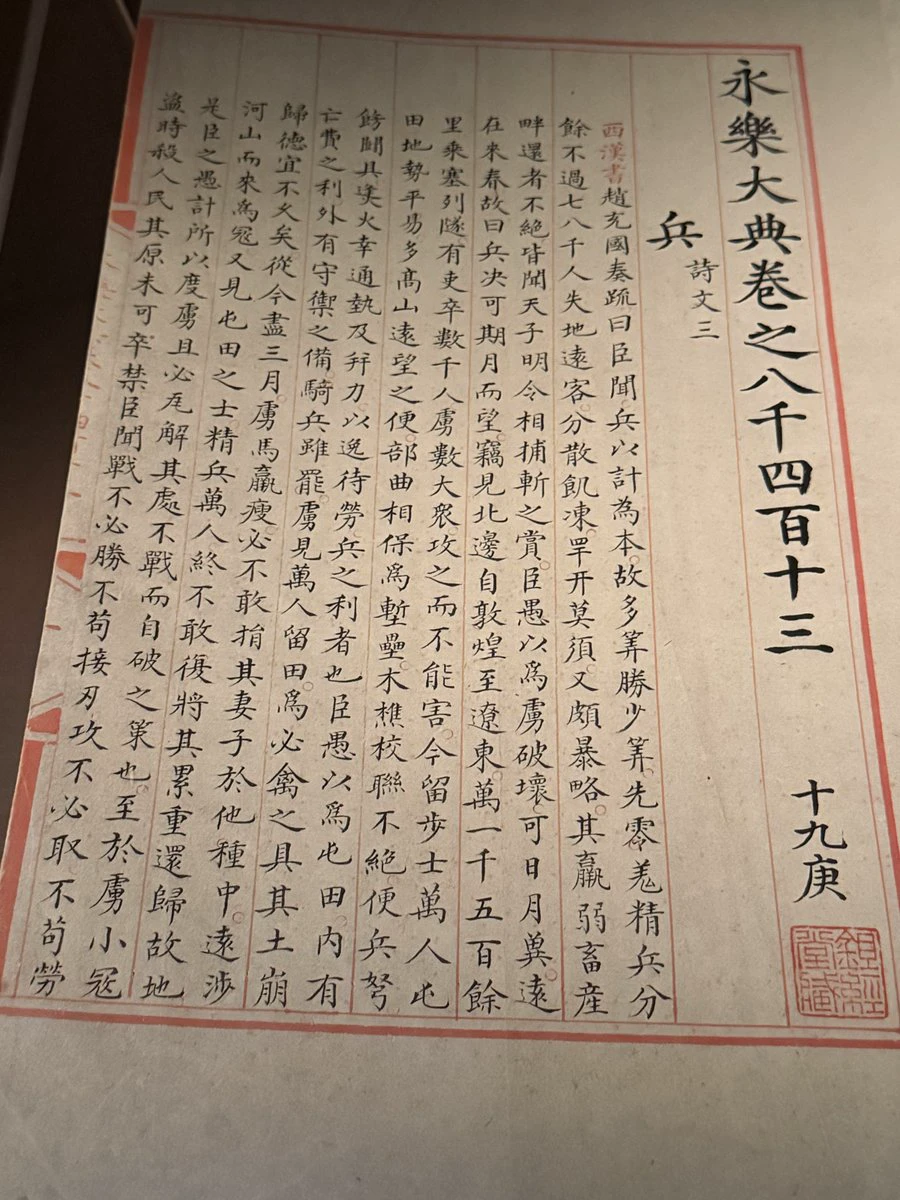 永樂大典卷之八千四百十三 十九庚
兵 詩文三
西漢書趙充國奏疏曰臣聞兵以計為本故多筭勝少筭先零羌精兵分
餘不過七八千人失地遠客分散飢凍罕开莫須又頗暴略其羸弱畜產
畔還者不絕皆聞天子明令相捕斬之賞臣愚以爲虜破壞可日月冀遠
在來春故曰兵决可期月而望竊見北邊自敦煌至遼東萬一千五百餘
里乘塞列隧有吏卒數千人虜數大衆攻之而不能害今留步士萬人屯
田地勢平易多髙山遠望之便部曲相保爲塹壘木樵校聯不絕便兵弩
餝鬭具烽火幸通埶及并力以逸待勞兵之利者也臣愚以爲屯田內有
亡費之利外有守禦之備騎兵雖罷虜見萬人留田爲必禽之具其土崩
歸德宜不久矣從今盡三月虜馬羸瘦必不敢捐其妻子於他種中遠涉
河山而來爲寇又見屯田之士精兵萬人終不敢復將其累重還歸故地
是臣之愚計所以度虜且必瓦解其處不戰而自破之策也至於虜小寇
盜時殺人民其原未可卒禁臣聞戰不必勝不苟接刃攻不必取不苟勞